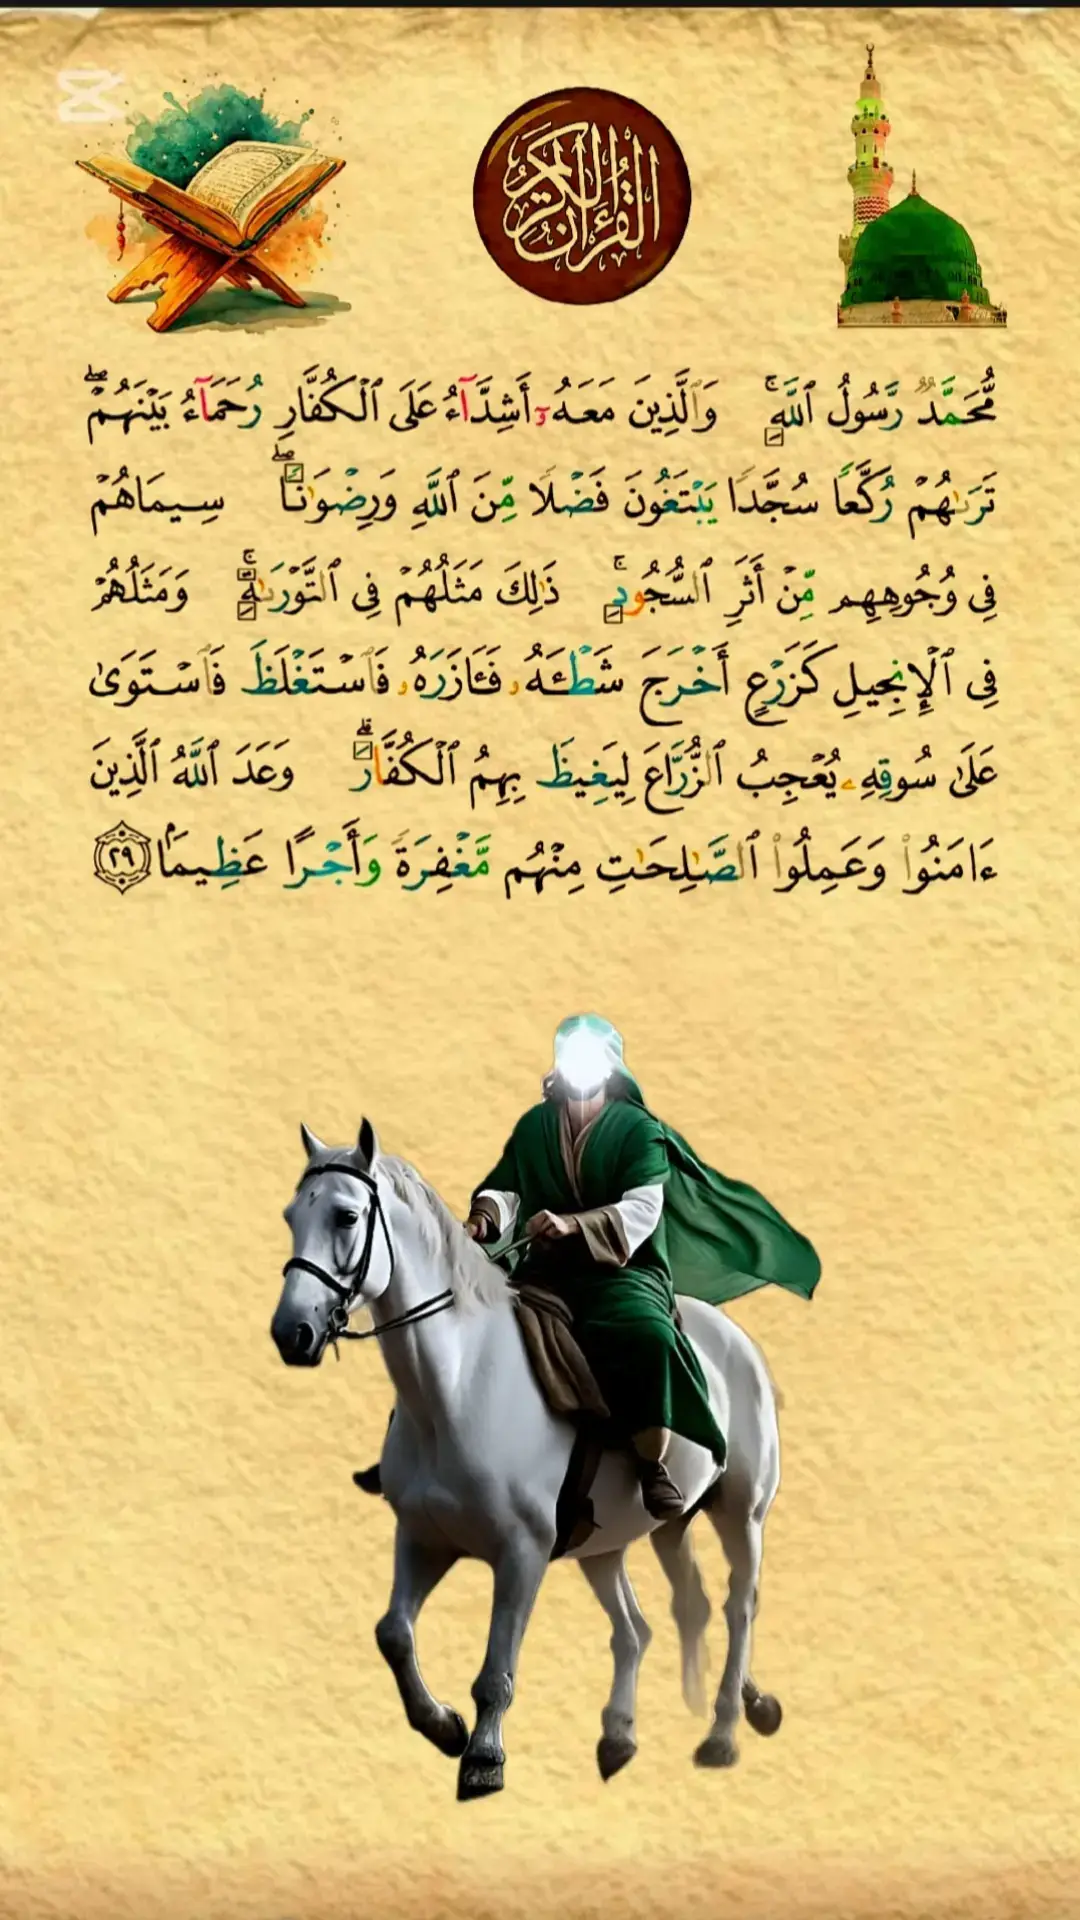 القرآن الكريم
مُّحَمَّدٌ رَّسُولُ ٱللَّهِۚ وَٱلَّذِينَ مَعَهُۥٓ أَشِدَّآءُ عَلَى ٱلْكُفَّارِ رُحَمَآءُ بَيْنَهُمْۖ
تَرَىٰهُمْ رُكَّعًا سُجَّدًا يَبْتَغُونَ فَضْلًا مِّنَ ٱللَّهِ وَرِضْوَٰنًاۖ سِيمَاهُمْ
فِى وُجُوهِهِم مِّنْ أَثَرِ ٱلسُّجُودِۚ ذَٰلِكَ مَثَلُهُمْ فِى ٱلتَّوْرَىٰةِۚ وَمَثَلُهُمْ
فِى ٱلْإِنجِيلِ كَزَرْعٍ أَخْرَجَ شَطْـَٔهُۥ فَـَٔازَرَهُۥ فَٱسْتَغْلَظَ فَٱسْتَوَىٰ
عَلَىٰ سُوقِهِۦ يُعْجِبُ ٱلزُّرَّاعَ لِيَغِيظَ بِهِمُ ٱلْكُفَّارَۗ وَعَدَ ٱللَّهُ ٱلَّذِينَ
ءَامَنُوا۟ وَعَمِلُوا۟ ٱلصَّٰلِحَٰتِ مِنْهُم مَّغْفِرَةً وَأَجْرًا عَظِيمًۢا ٢٩